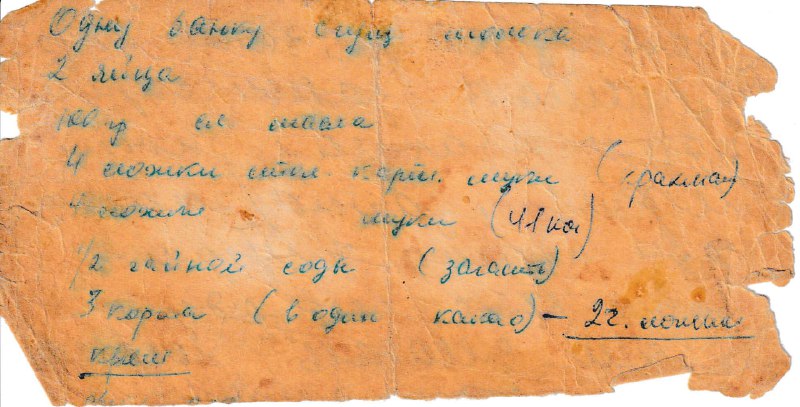 Одну банку сгущ молока
2 яйца
100 гр сл масла
4 ложки стол. карт. муки (крахмал)
4 ложки муки
1/2 чайной соды (загасить)
3 коржа (в один какао) – 2 ч. ложки